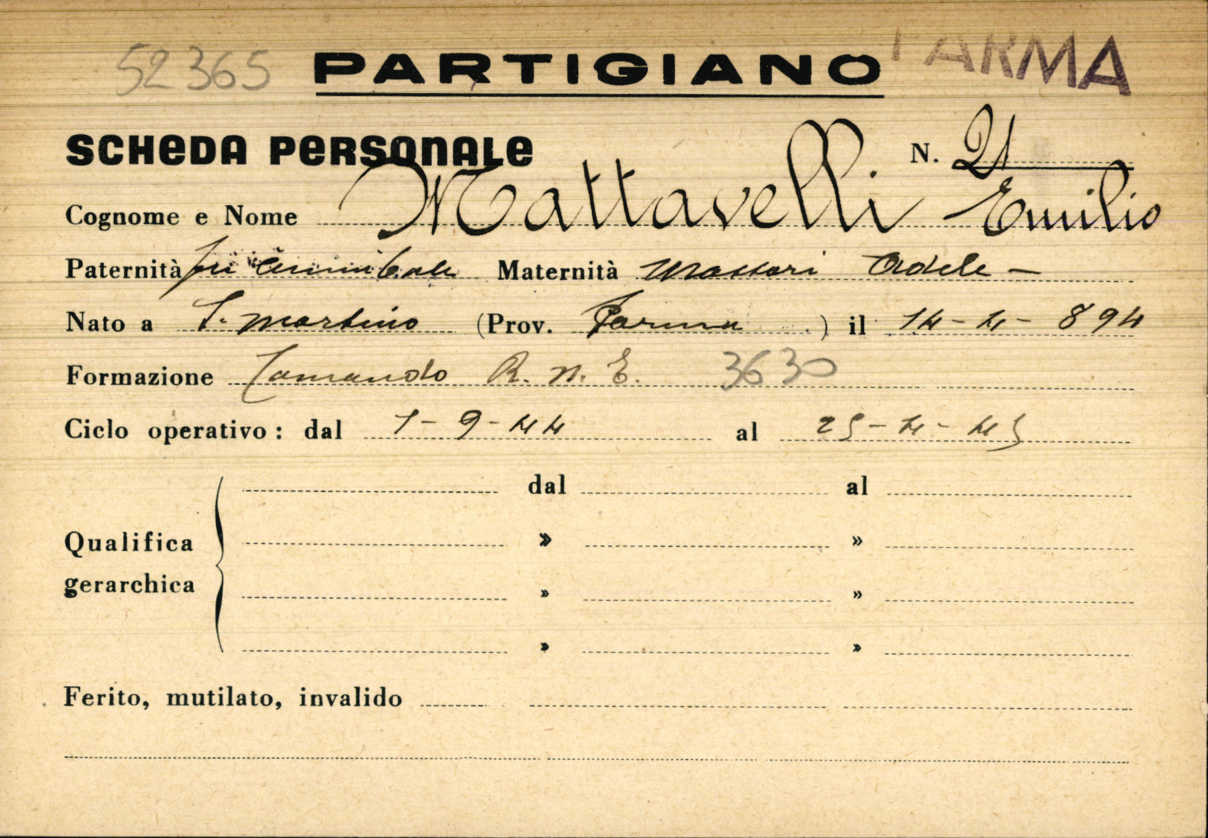 52365 PARTIGIANO PARMA
SCHEDA PERSONALE N. 21
Cognome e Nome Mattavelli Emilio
Paternità fu Annibale Maternità Massari Adele -
Nato a S. Martino (Prov. Parma ) il 14-4-894
Formazione Comando R. N. E. 3630
Ciclo operativo: dal 1-9-44 al 25-4-45
dal al
Qualifica » »
gerarchica » »
» »
Ferito, mutilato, invalido